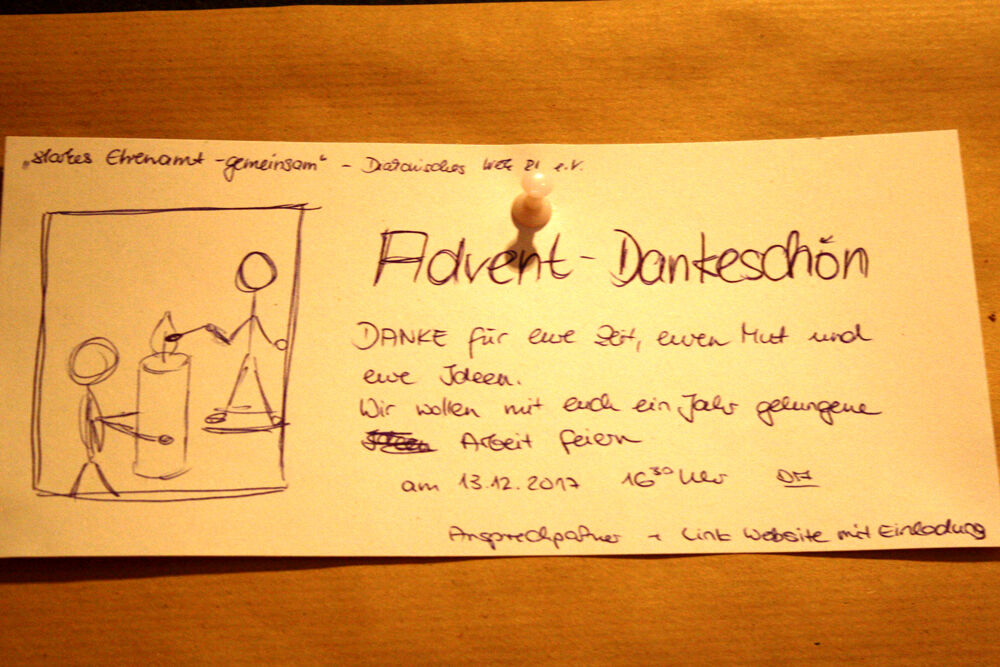 „starkes Ehrenamt - gemeinsam" - Diakonisches Werk e.V.
Advent - Dankeschön
DANKE für eure Zeit, euren Mut und
eure Ideen.
Wir wollen mit euch ein Jahr gelungene
Arbeit feiern
am 13.12.2017 16³⁰ Uhr
Ansprechpartner + Link Website mit Einladung